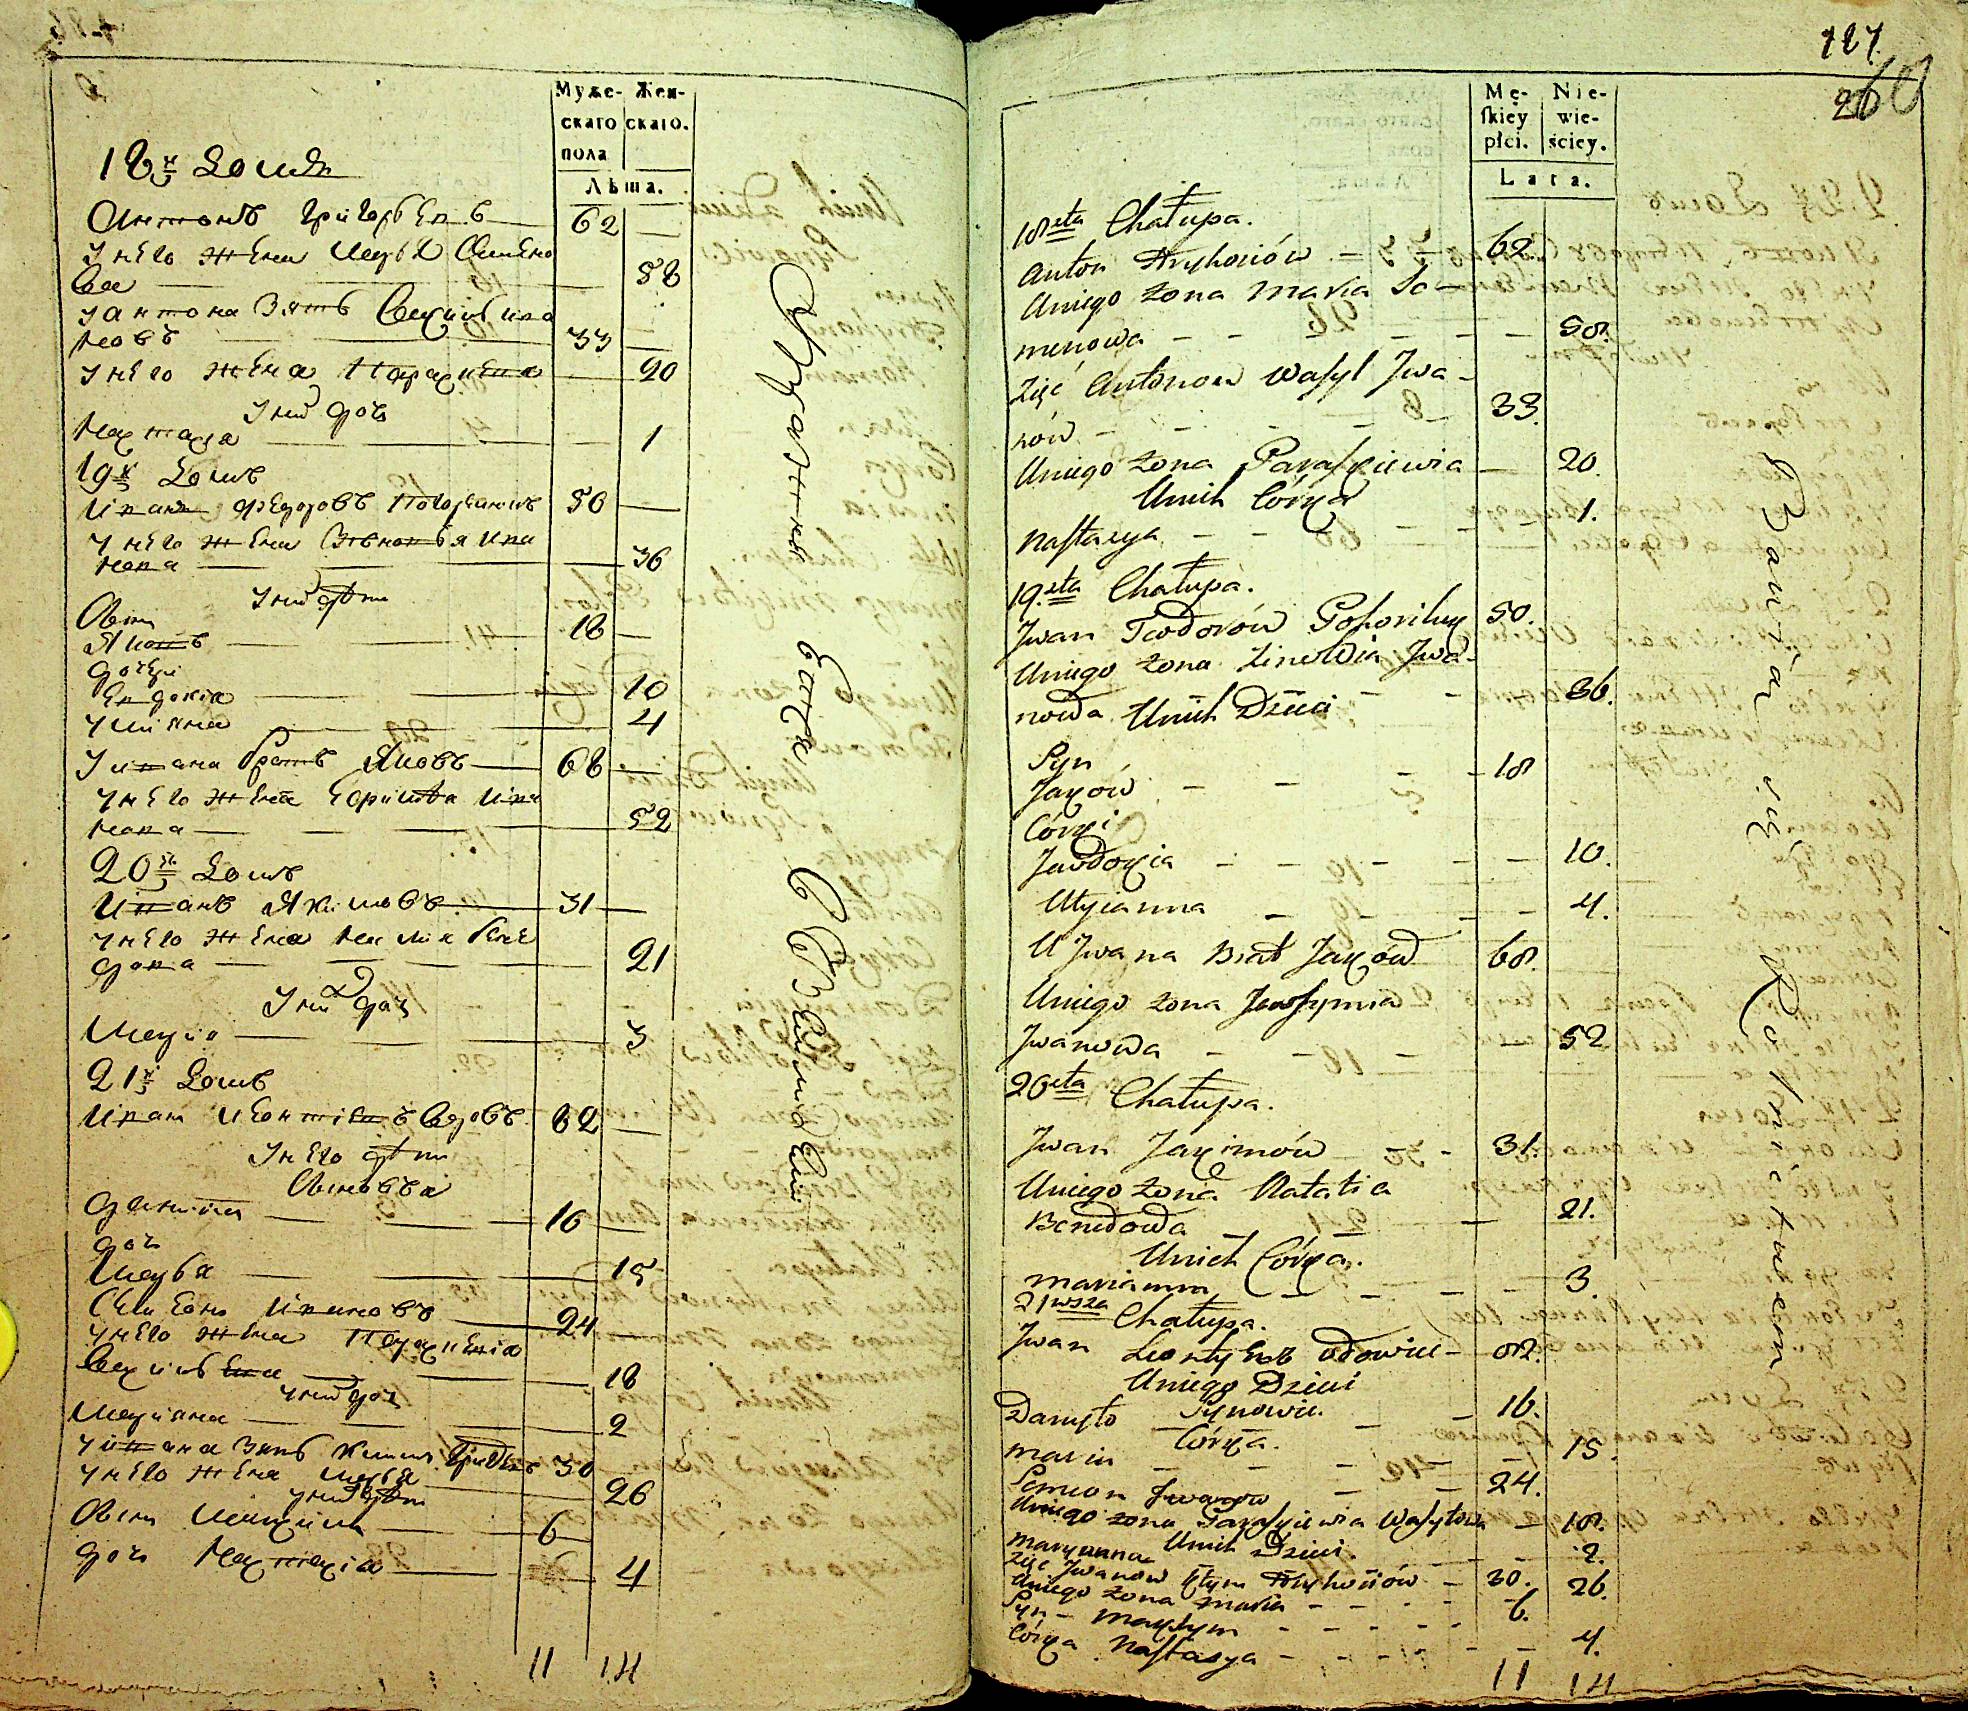 Муже-
скаго
пола
Жен-
скаго.
Лѣта.
18й Домъ
Антонъ Григорьевъ 62
У него жена Марья Семено
ва 58
У Антона зять Василь Ива
новъ 33
У него жена Параскева 20
У них дочь
Настасья 1
19й Домъ
Иванъ Федоровъ 50
У него жена Зѣновья Ива
нова 36
У них дѣти
Сын
Яковъ 18
дочери
Евдокия 10
Улияна 4
У Ивана братъ Яковъ 68
У него жена Ефимья Ива
нова 52
20й Домъ
Иванъ Якимовъ 31
У него жена
21
У них дочь
Марья 3
21й Домъ
Иван Леонтіевъ вдовъ 82
У него дѣти
Сыновья
Данила 16
дочь
Марья 15
Семенъ Ивановъ 24
У него жена Параскевия
Васильева 18
У них дочь
Марияна 2
У Ивана зять 30
У него жена Марья 26
У них дѣти
Сын Максим 6
дочь Настасия 4
11 14
127
260
Mę-
skiey
płci.
Nie-
wie-
ściey.
Lata.
18sta Chałupa.
Anton Hryhoriów 62.
Uniego żona Maria Se-
menowa 58.
Zięć Antonow Wasyl Jwa-
nów 33.
Uniego żona Paraskiewia 20.
Unich Córka
Nastasya 1.
19.sta Chałupa.
Jwan Teodorów 50.
Uniego żona Zinowia Jwa-
nowa 36.
Unich Dzieci
Syn
Jaków 18
Córki
Jawdokia 10.
Ulyianna 4.
U Jwana Brat Jaków 68.
Uniego żona Jewfymia
Jwanowa 52
20sta Chałupa.
Jwan Jakimów 31.
Uniego żona Natalia
21.
Unich Córka.
Marianna 3.
21wsza Chałupa.
Jwan Leontyiew wdowiec 82.
Uniego Dzieci
Synowie.
Daniyło 16.
Córka.
Maria 15.
Semion Jwanow 24.
Uniego żona Paraskiewia Wasylowa 18.
Unich Dzieci.
Maryanna 2.
Zięć Jwanow Hryhoriów 30.
Uniego żona Maria 26.
Syn Maksym 6.
Córka Nastasya 4.
11 14